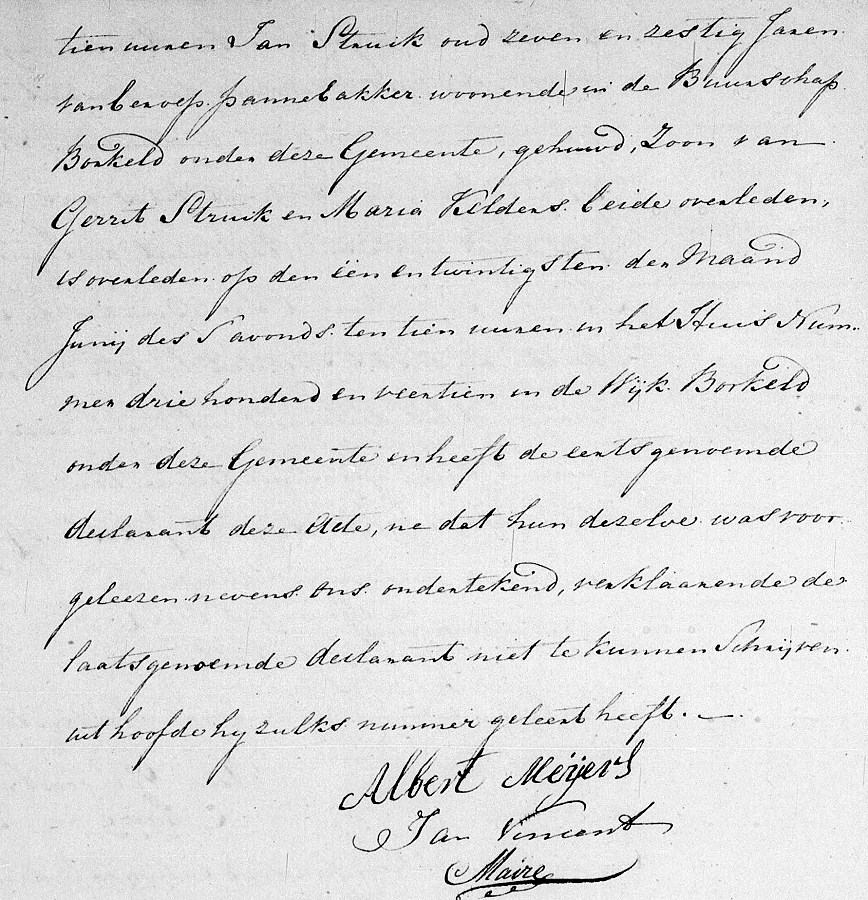 tien uuren Jan Struik oud zeven en zestig Jaren
van beroep pannebakker woonende in de Buurschap
Borkeld onder deze Gemeente, gehuwd, Zoon van
Gerrit Struik en Maria Kelders beide overleden,
is overleden op den één en twintigsten der Maand
Junij des s avonds ten tien uuren in het Huis Num-
mer drie honderd en veertien in de Wijk Borkeld
onder deze Gemeente en heeft de eerstgenoemde
declarant deze Acte, na dat hun dezelve was voor
geleezen nevens ons ondertekend, verklaarende de
laatsgenoemde declarant niet te kunnen Schrijven
uit hoofde hy zulks nimmer geleert heeft. —.
Albert Meijers
Jan Vincent
Maire